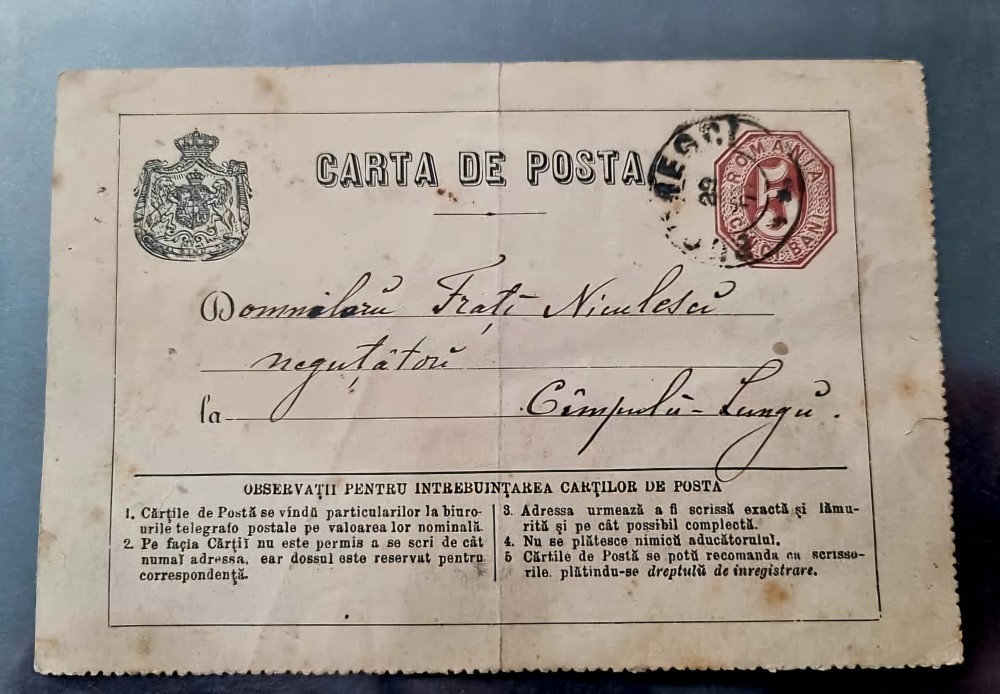 CARTA DE POSTA
ROMANIA
5
CINCI BANI
Domniloru Frați Niculescŭ
neguțâtorŭ
la Cîmpulŭ-Lungŭ.
OBSERVAȚII PENTRU INTREBUINȚAREA CARȚILOR DE POSTA
1. Cărțile de Postă se vîndŭ particularilor la biuro-
urile telegrafo postale pe valoarea lor nominală.
2. Pe facia Cărțiĭ nu este permis a se scri de cât
numaĭ adressa, ear dossul este reservat pentru
corespondență.
3. Adressa urmează a fi scrissă exactă și lămu-
rită și pe cât possibil complectă.
4. Nu se plătesce nimicŭ aducătoruluĭ.
5 Cărtile de Postă se potŭ recomanda ca scrisso-
rile plătindu-se dreptulŭ de înregistrare.